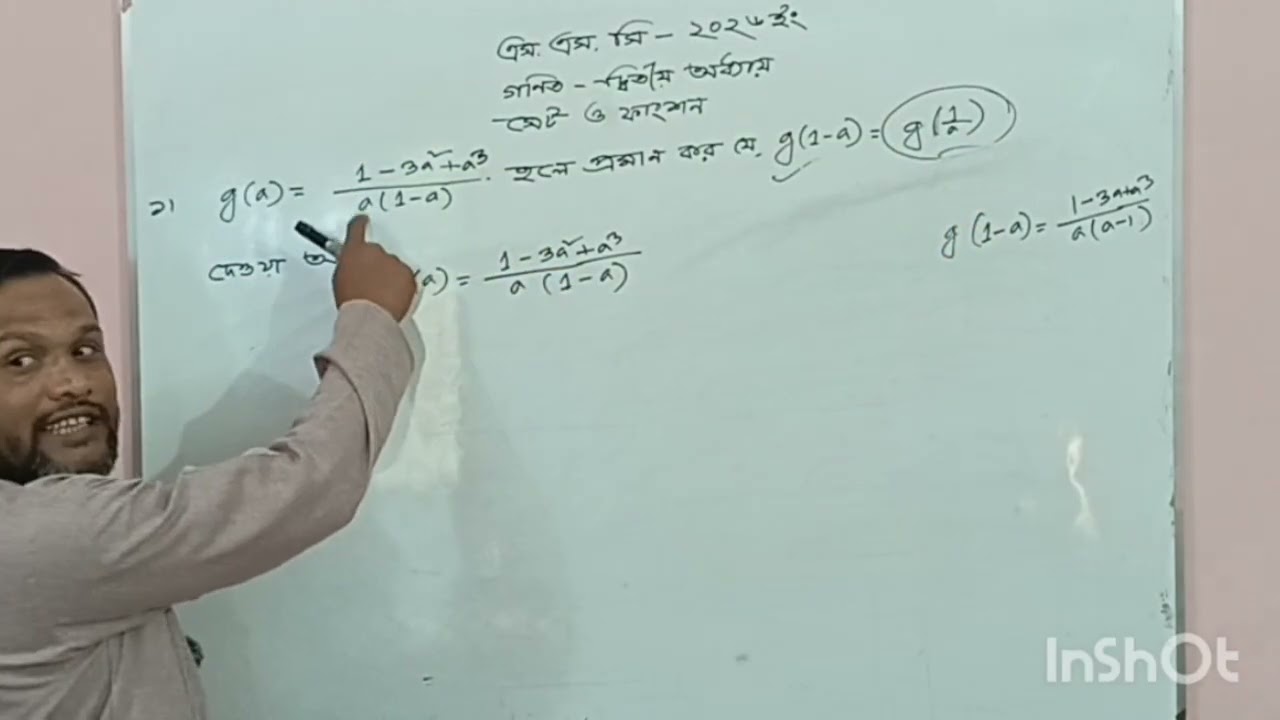 এস. এস. সি - ২০২৬ ইং
গনিত - দ্বিতীয় অধ্যায়
সেট ও ফাংশন
২। g(a) = (1-3a²+a³)/(a(1-a)). হলে প্রমান কর যে, g(1-a) = g(1/a)
দেওয়া a) = (1-3a²+a³)/(a(1-a))
g(1-a) = (1-3a+a³)/(a(a-1))
InShOt